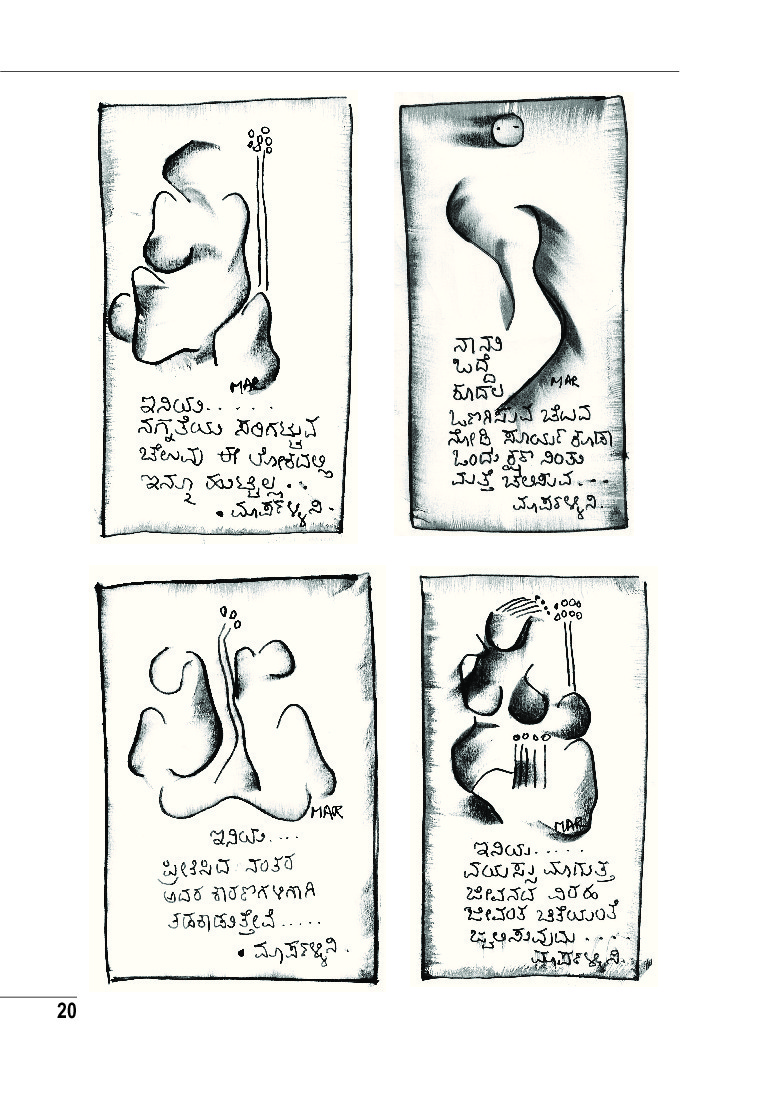 MAR
ಇನಿಯಾ.....
ನಗ್ನತೆಯ ಸರಿಗಟ್ಟುವ
ಚೆಲುವು ಈ ಲೋಕದಲ್ಲಿ
ಇನ್ನೂ ಹುಟ್ಟಿಲ್ಲ..
MAR
ಒದ್ದೆ
ಕೂದಲ
ಒಣಗಿಸುವ ಚೆಲುವ
ನೋಡಿ ಸೂರ್ಯ ಕೂಡಾ
ಒಂದು ಕ್ಷಣ ನಿಂತು
ಮತ್ತೆ ಚಲಿಸುವ...
MAR
ಇನಿಯಾ....
ಪ್ರೀತಿಸಿದ ನಂತರ
ಅದರ ಕಾರಣಗಳಿಗಾಗಿ
ತಡಕಾಡುತ್ತೇವೆ.....
MAR
ಇನಿಯಾ.....
ವಯಸ್ಸು ಮಾಗುತ್ತ
ಜೀವನದ ವಿರಹ
ಜೀವಂತ ಚಿತೆಯಂತೆ
ಜ್ವಲಿಸುವುದು....
20